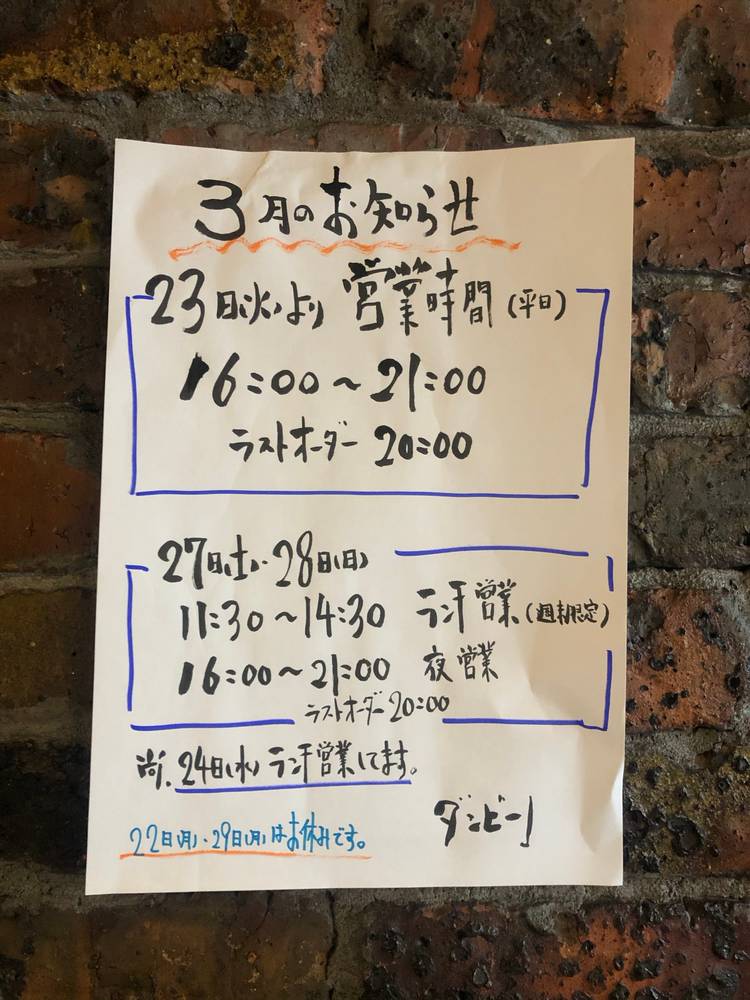 3月のお知らせ
23日(火)より 営業時間(平日)
16:00〜21:00
ラストオーダー 20:00
27日(土)・28日(日)
11:30〜14:30 ランチ営業(週末限定)
16:00〜21:00 夜営業
ラストオーダー 20:00
尚、24日(水)ランチ営業してます。
ダンビーノ
22日(月)・29日(月)はお休みです。